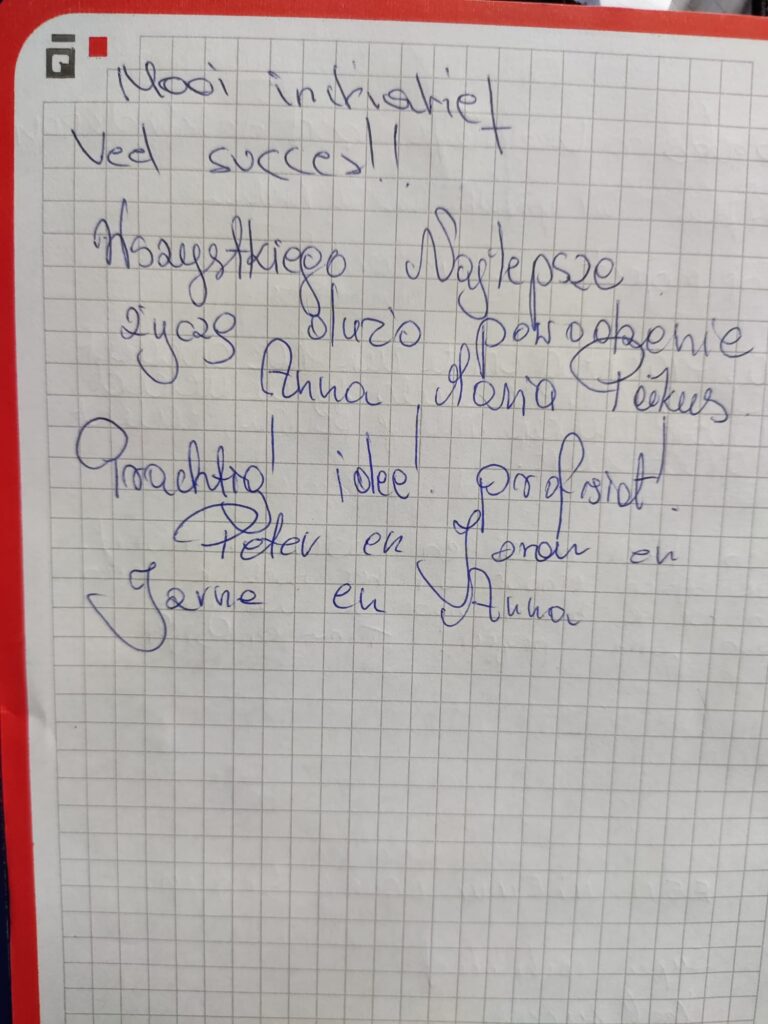 Mooi initiatief
Veel succes!!
Wszystkiego Najlepsze
życzę dużo powodzenie
Anna Maria
Prachtig! idee! proficiat!
Peter en Joran en
Jarne en Anna